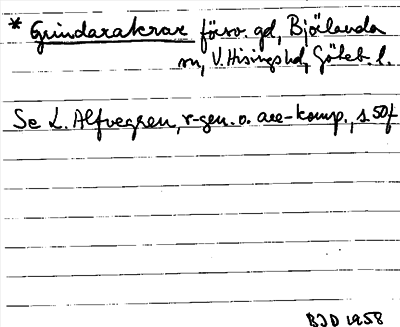 * Grindarakrar försv. gd, Björlanda
sn, V. Hisings hd, Göteb. l.
Se L. Alfvegren, r-gen. o. ace-komp., s 50f
BJD 1958